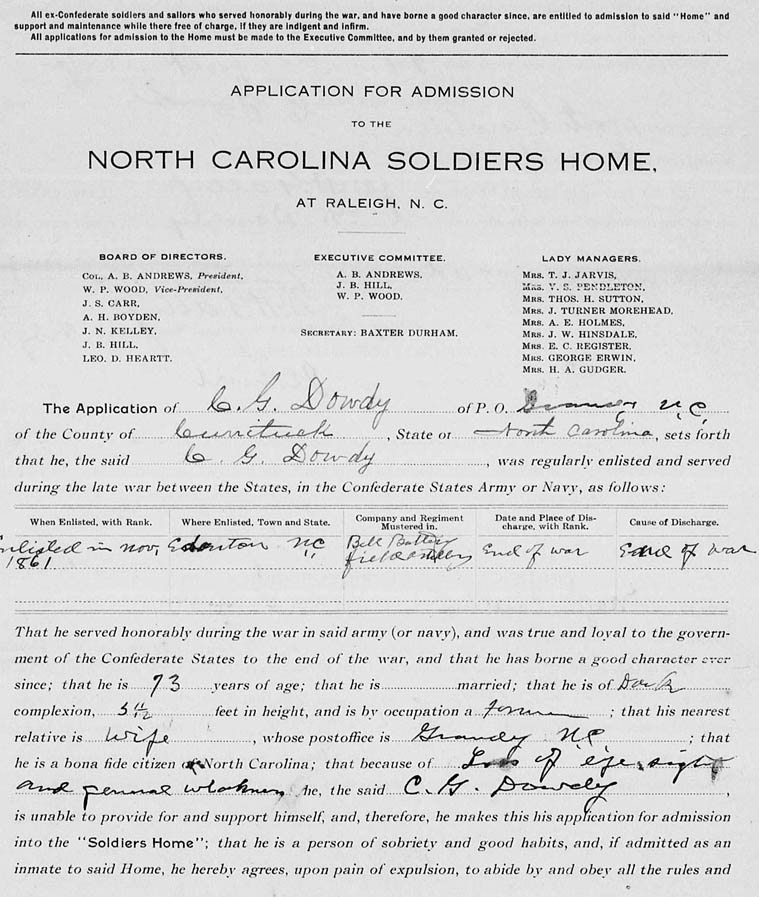 All ex-Confederate soldiers and sailors who served honorably during the war, and have borne a good character since, are entitled to admission to said "Home" and
support and maintenance while there free of charge, if they are indigent and infirm.
All applications for admission to the Home must be made to the Executive Committee, and by them granted or rejected.
APPLICATION FOR ADMISSION
TO THE
NORTH CAROLINA SOLDIERS HOME,
AT RALEIGH, N. C.
BOARD OF DIRECTORS.
COL. A. B. ANDREWS, President,
W. P. WOOD, Vice-President,
J. S. CARR,
A. H. BOYDEN,
J. N. KELLEY,
J. B. HILL,
LEO. D. HEARTT.
EXECUTIVE COMMITTEE.
A. B. ANDREWS,
J. B. HILL,
W. P. WOOD.
SECRETARY: BAXTER DURHAM.
LADY MANAGERS.
MRS. T. J. JARVIS,
MRS. V. S. PENDLETON,
MRS. THOS. H. SUTTON,
MRS. J. TURNER MOREHEAD,
MRS. A. E. HOLMES,
MRS. J. W. HINSDALE,
MRS. E. C. REGISTER,
MRS. GEORGE ERWIN,
MRS. H. A. GUDGER.
The Application of C. G. Dowdy of P. O. N.C.
of the County of Currituck, State of North Carolina, sets forth
that he, the said C. G. Dowdy, was regularly enlisted and served
during the late war between the States, in the Confederate States Army or Navy, as follows:
When Enlisted, with Rank.
Where Enlisted, Town and State.
Company and Regiment Mustered in.
Date and Place of Discharge, with Rank.
Cause of Discharge.
Enlisted in Nov, 1861
Edenton N.C.
Bell Battery
field
End of war
End of war
That he served honorably during the war in said army (or navy), and was true and loyal to the govern-
ment of the Confederate States to the end of the war, and that he has borne a good character ever
since; that he is 73 years of age; that he is married; that he is of Dark
complexion, feet in height, and is by occupation a farmer; that his nearest
relative is wife, whose postoffice is Grandy NC; that
he is a bona fide citizen of North Carolina; that because of Loss of eye sight
and general weakness he, the said C. G. Dowdy,
is unable to provide for and support himself, and, therefore, he makes this his application for admission
into the "Soldiers Home"; that he is a person of sobriety and good habits, and, if admitted as an
inmate to said Home, he hereby agrees, upon pain of expulsion, to abide by and obey all the rules and